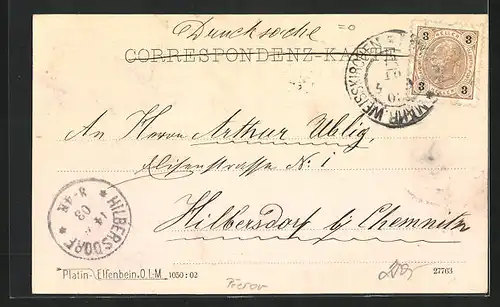 Drucksache
CORRESPONDENZ-KARTE
3 3
3 3
MÄHR. WEISSKIRCHEN
An Herrn Arthur Uhlig,
Elisenstrasse No. 1
Hilbersdorf bj Chemnitz
HILBERSDORF
14 03
3-4N
Platin-Elfenbein.O.I.M 1050:02
Přerov
27763